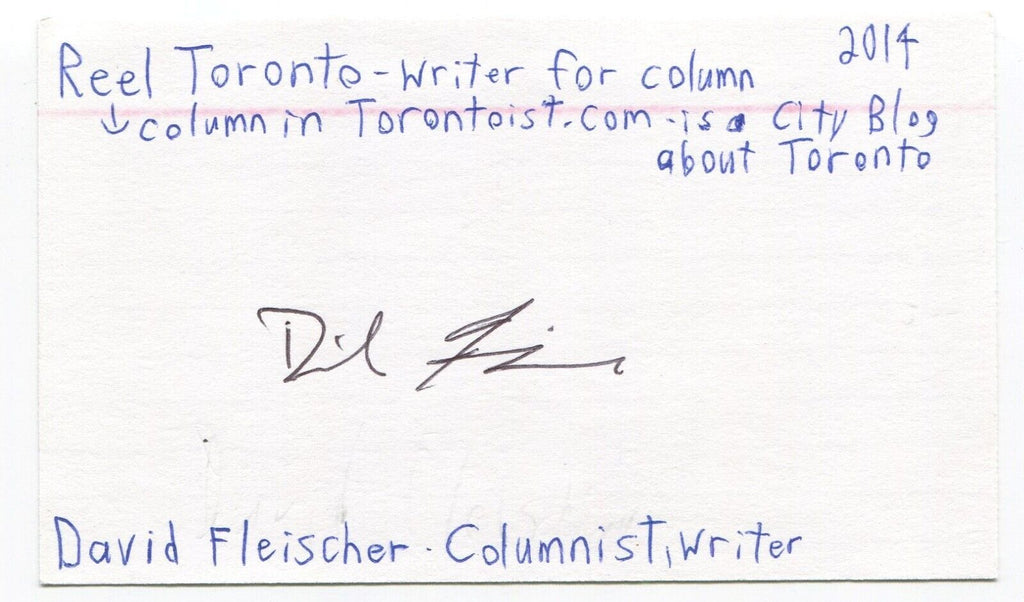 2014
Reel Toronto - Writer for column
↓ column in Torontoist.com - is a City Blog
about Toronto
David Fleischer - Columnist, Writer